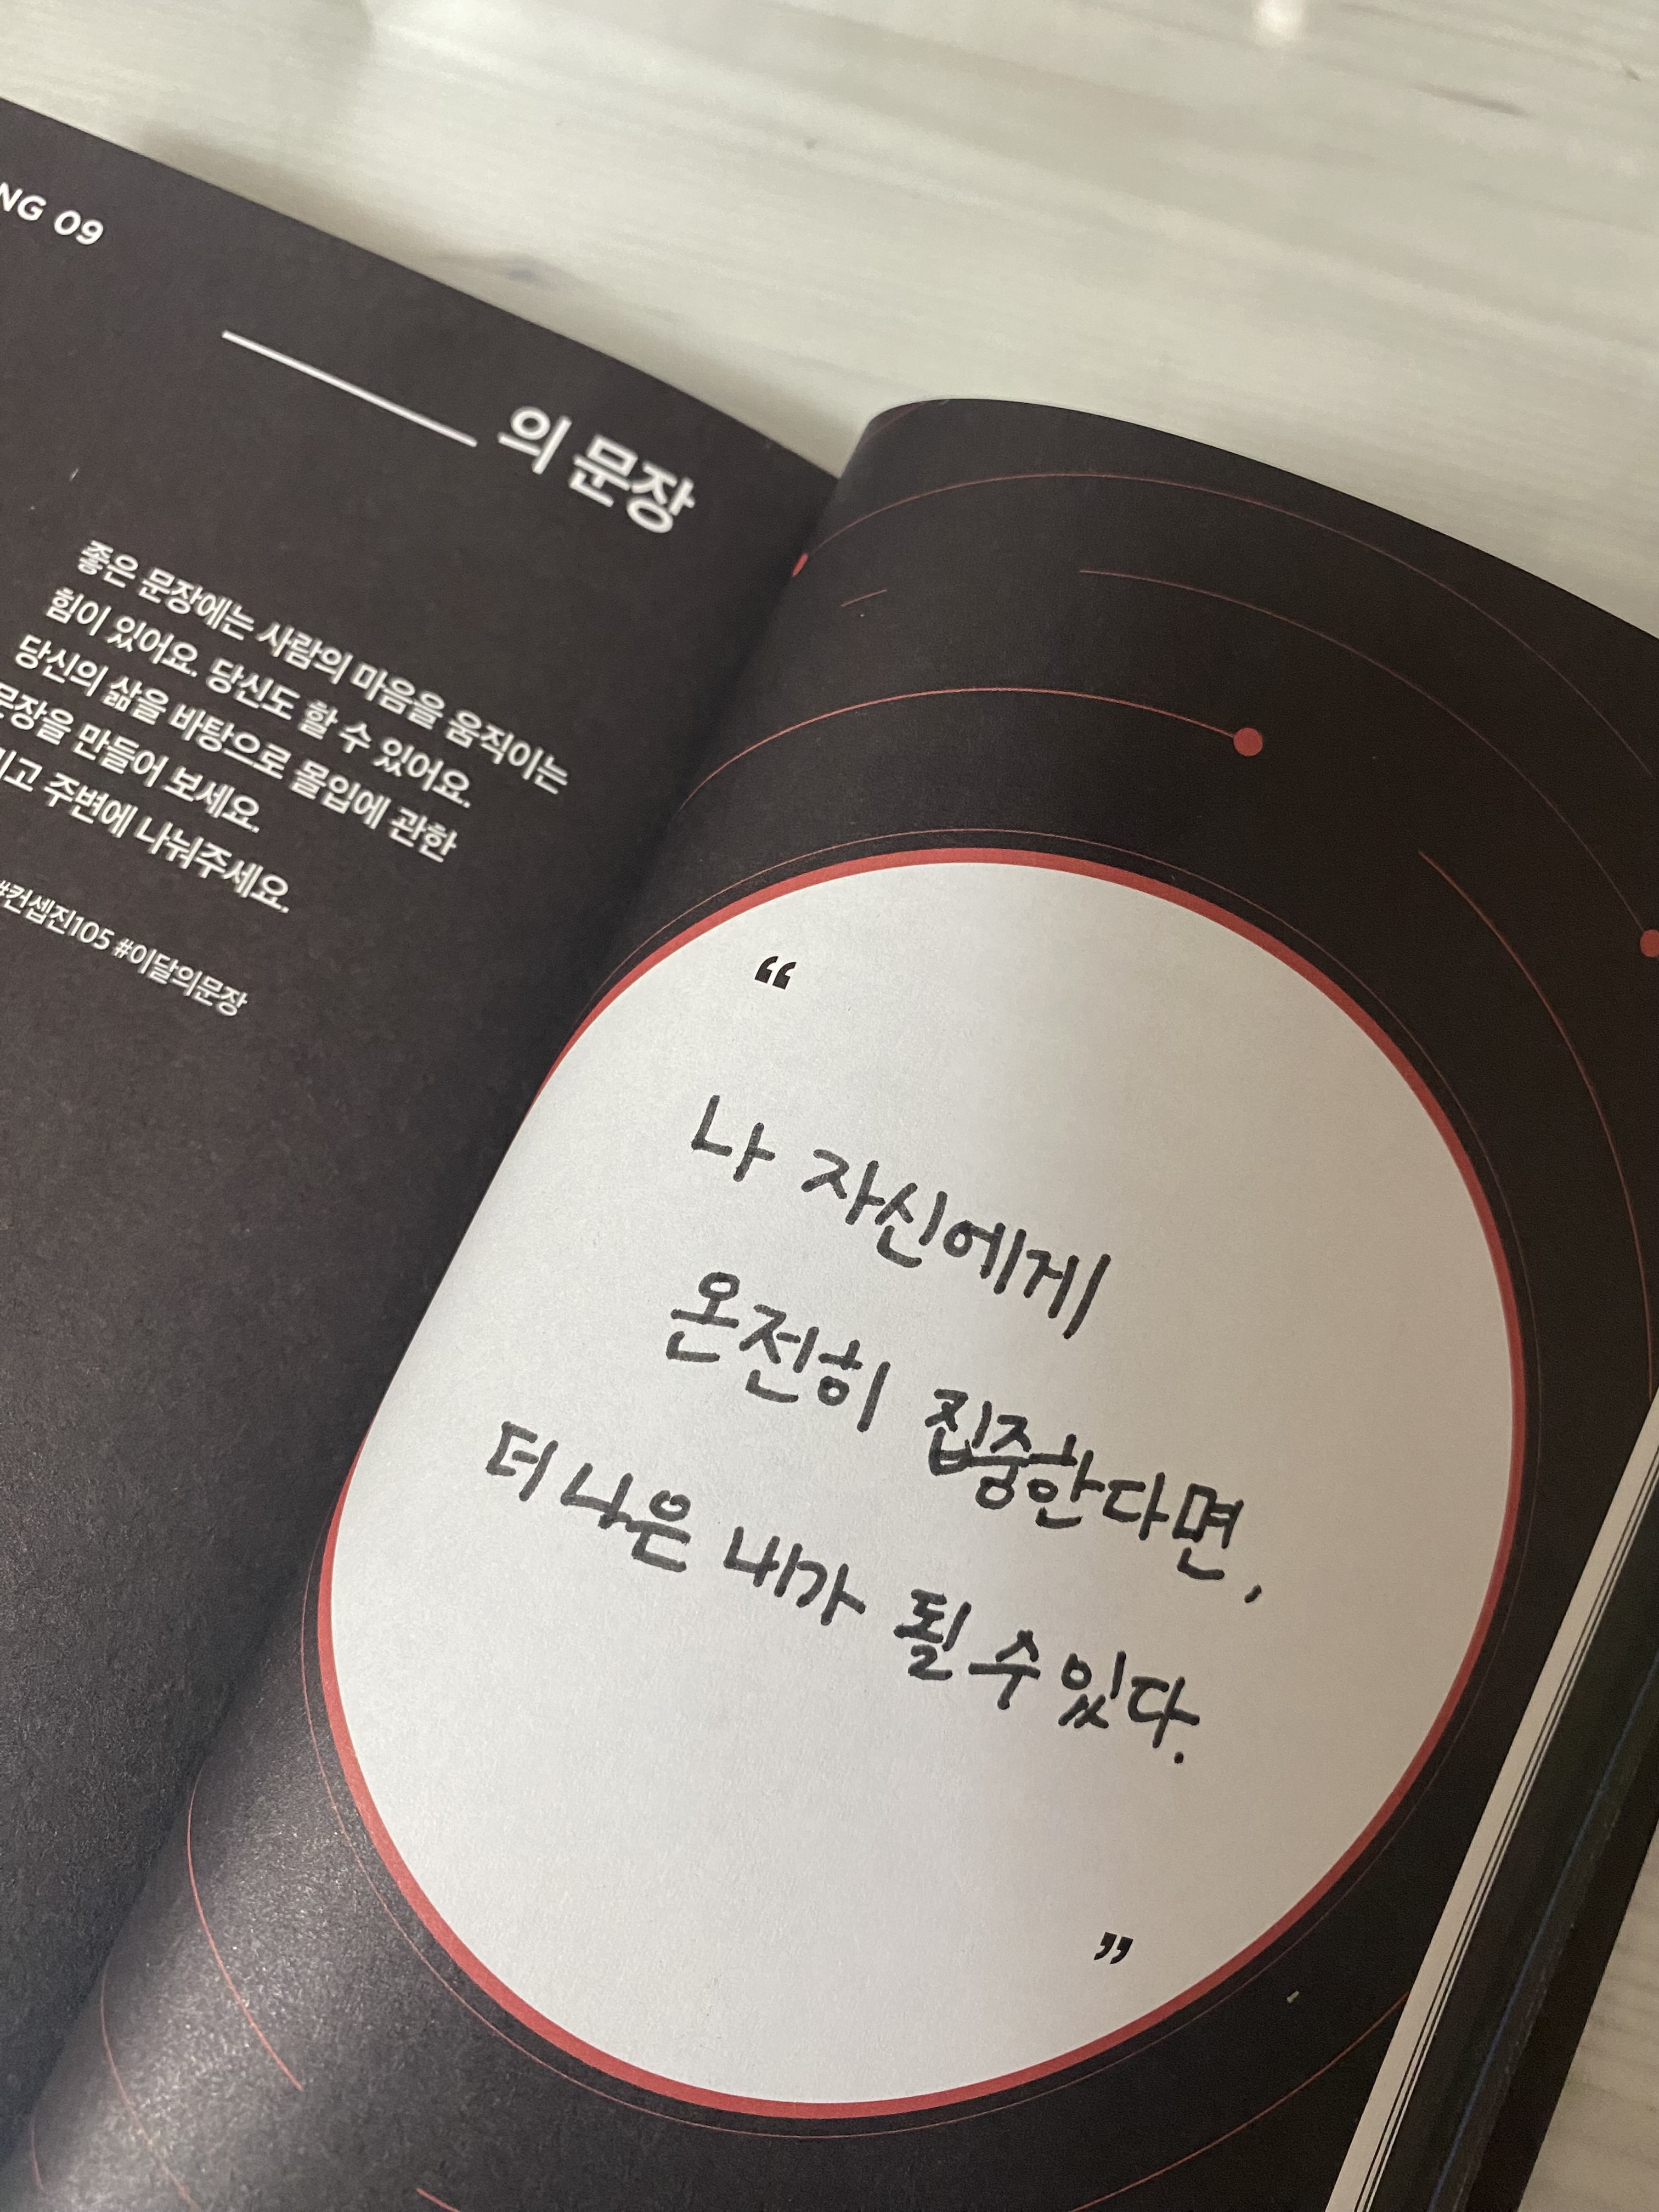 NG 09
의 문장
좋은 문장에는 사람의 마음을 움직이는
힘이 있어요. 당신도 할 수 있어요.
당신의 삶을 바탕으로 몰입에 관한
문장을 만들어 보세요.
고 주변에 나눠주세요.
#컨셉진105 #이달의문장
“
나 자신에게
온전히 집중한다면,
더 나은 내가 될 수 있다.
”